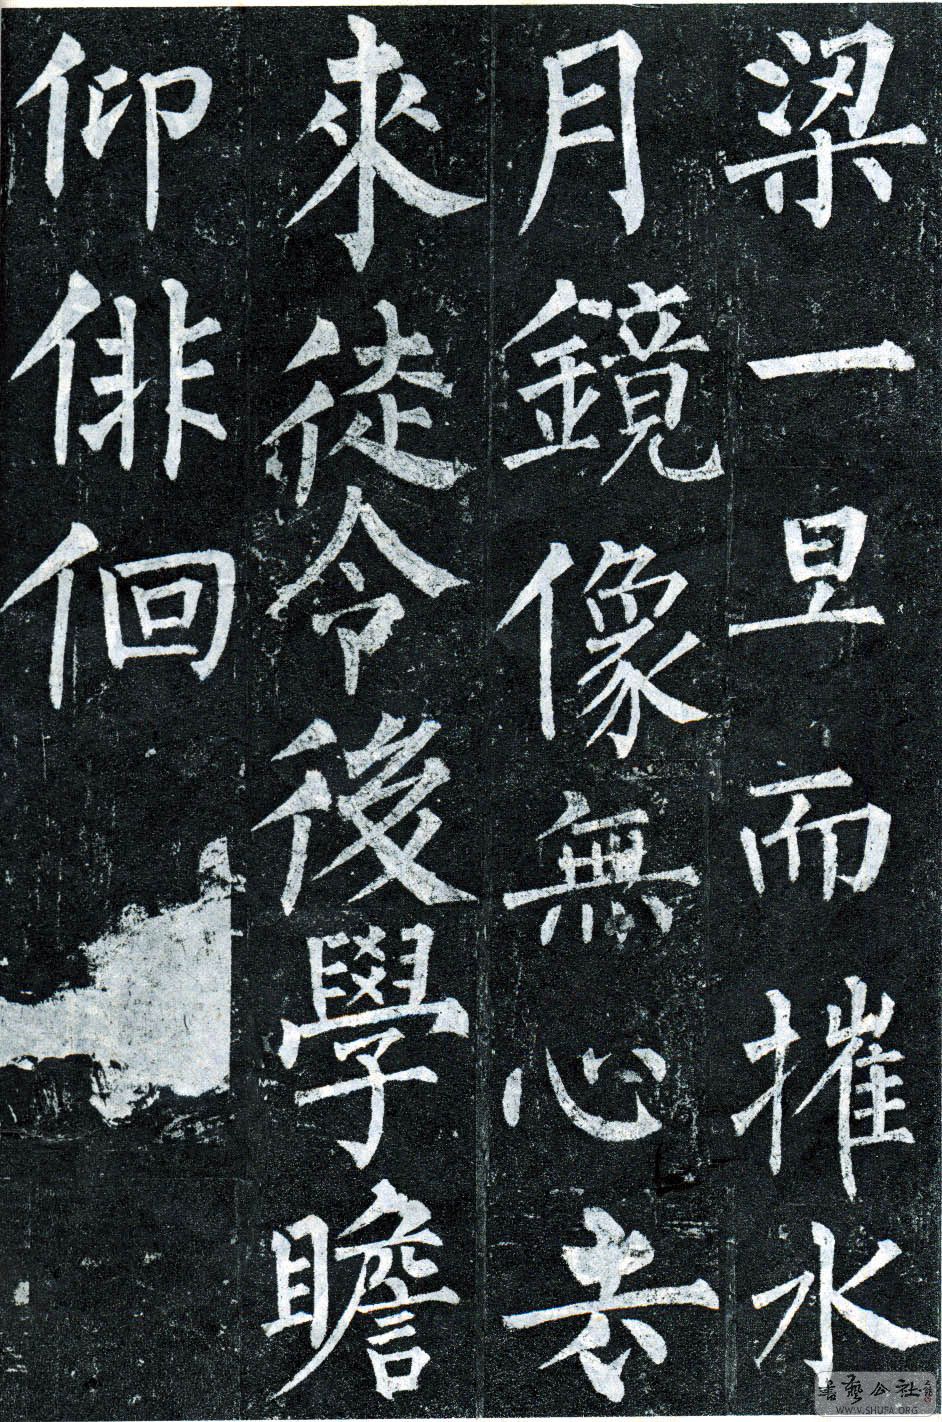 梁一旦而摧水
月鏡像無心去
來徒令後學瞻
仰俳佪
書藝公社
WWW.SHUFA.ORG